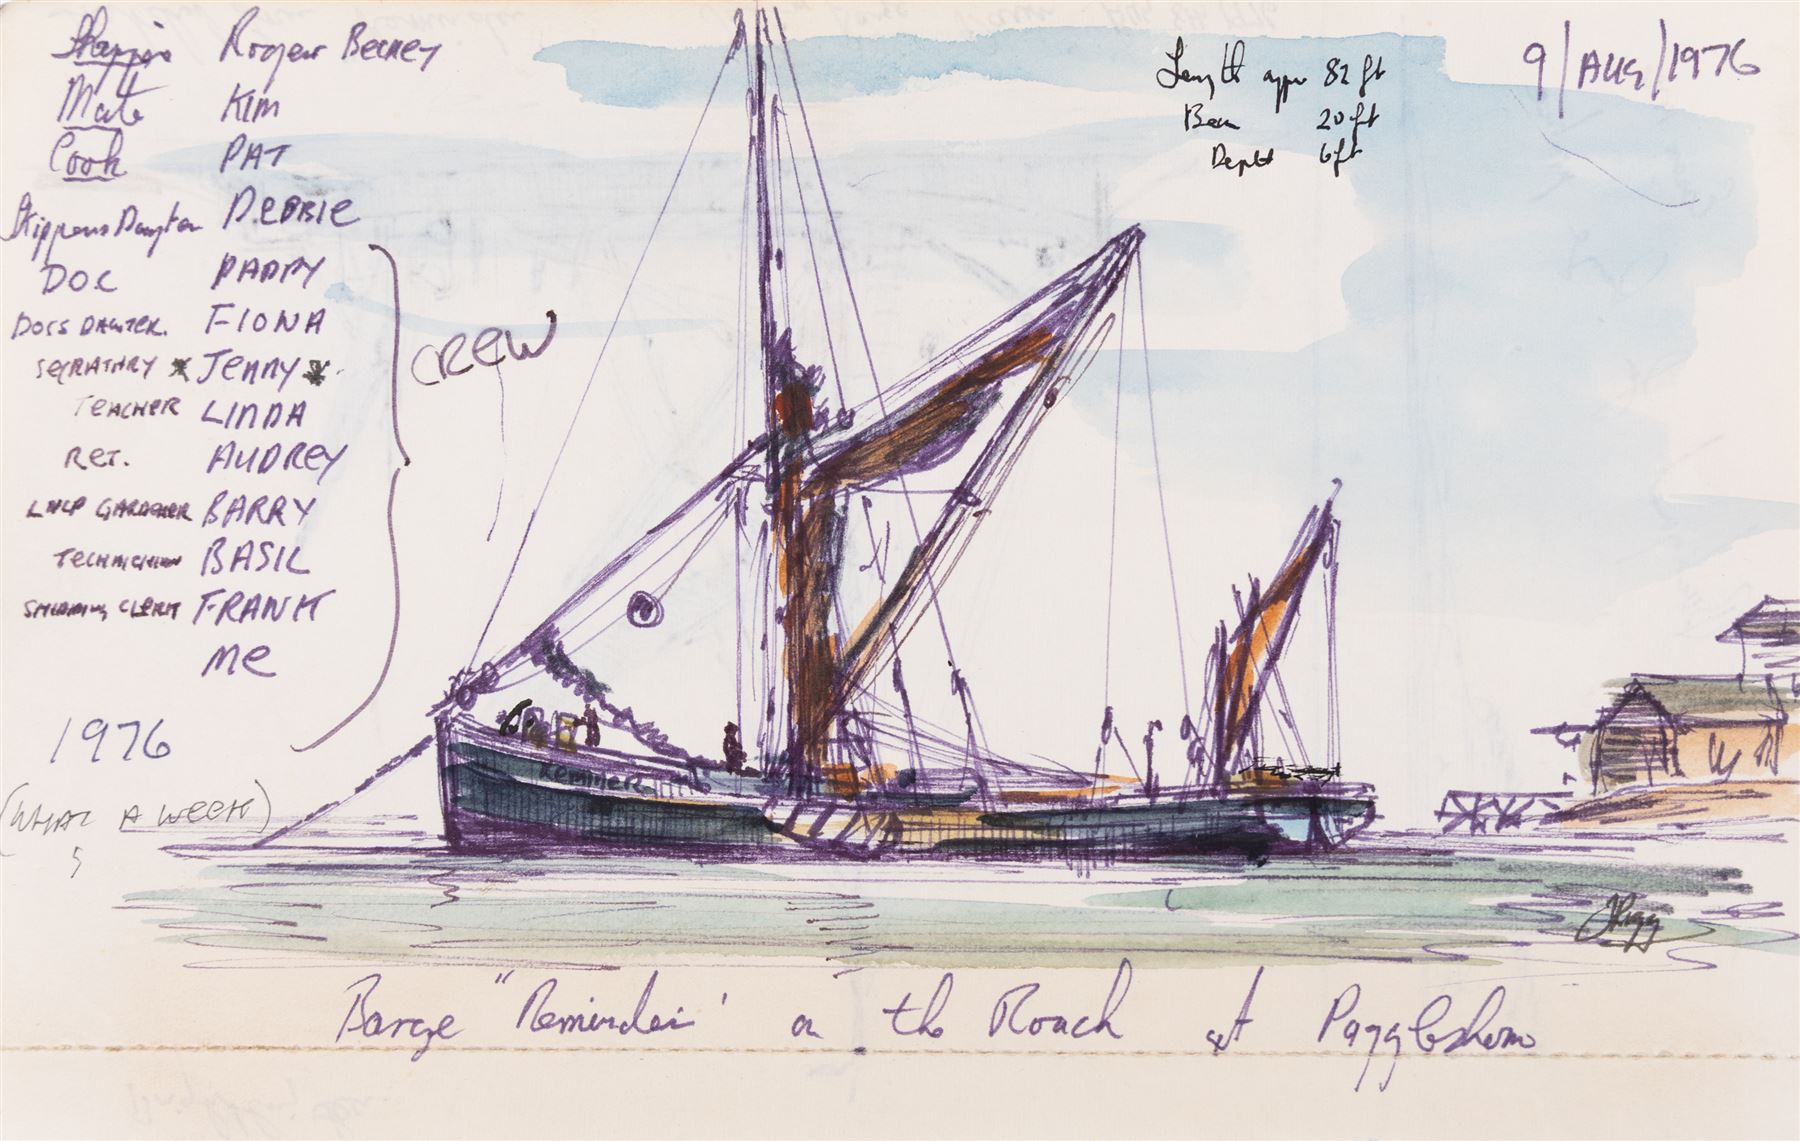 Skipper Roger Beckey
Mate KIM
Cook PAT
Skippers Dayter DEBBIE
DOC PADDY
DOCS DAUTER. FIONA
SECRATHRY * JENNY *
TEACHER LINDA
RET. AUDREY
GARDENER BARRY
TECHNICHION BASIL
SHIPPING CLERK FRANK
ME
CREW
1976
(WHAT A WEEK)
Length app 82 ft
Beam 20 ft
Depth 6 ft
9/AUG/1976
REMINDER
JRigg
Barge "Reminder' on the Roach at Pagglesham